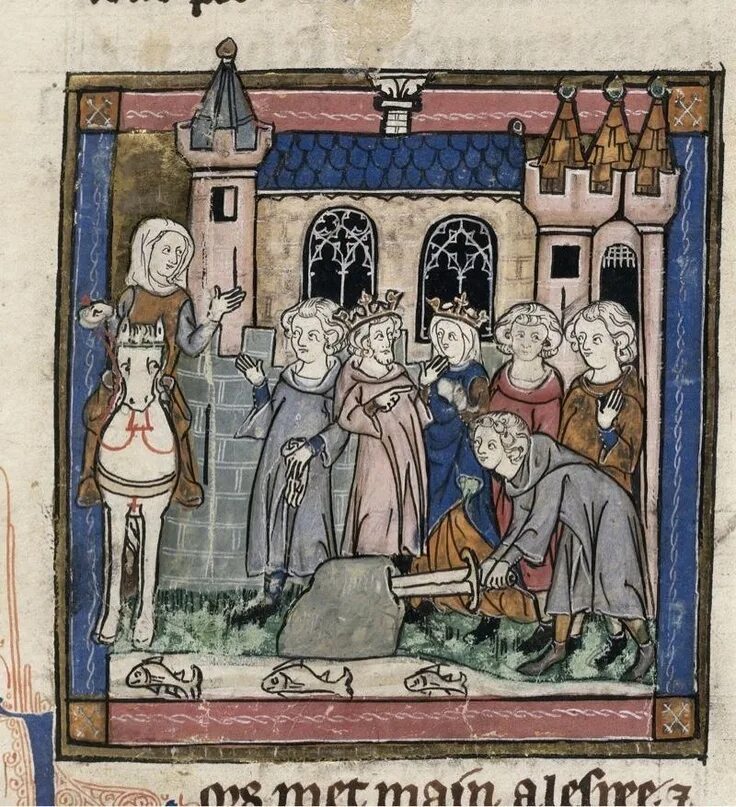 ors met main alespee ⁊